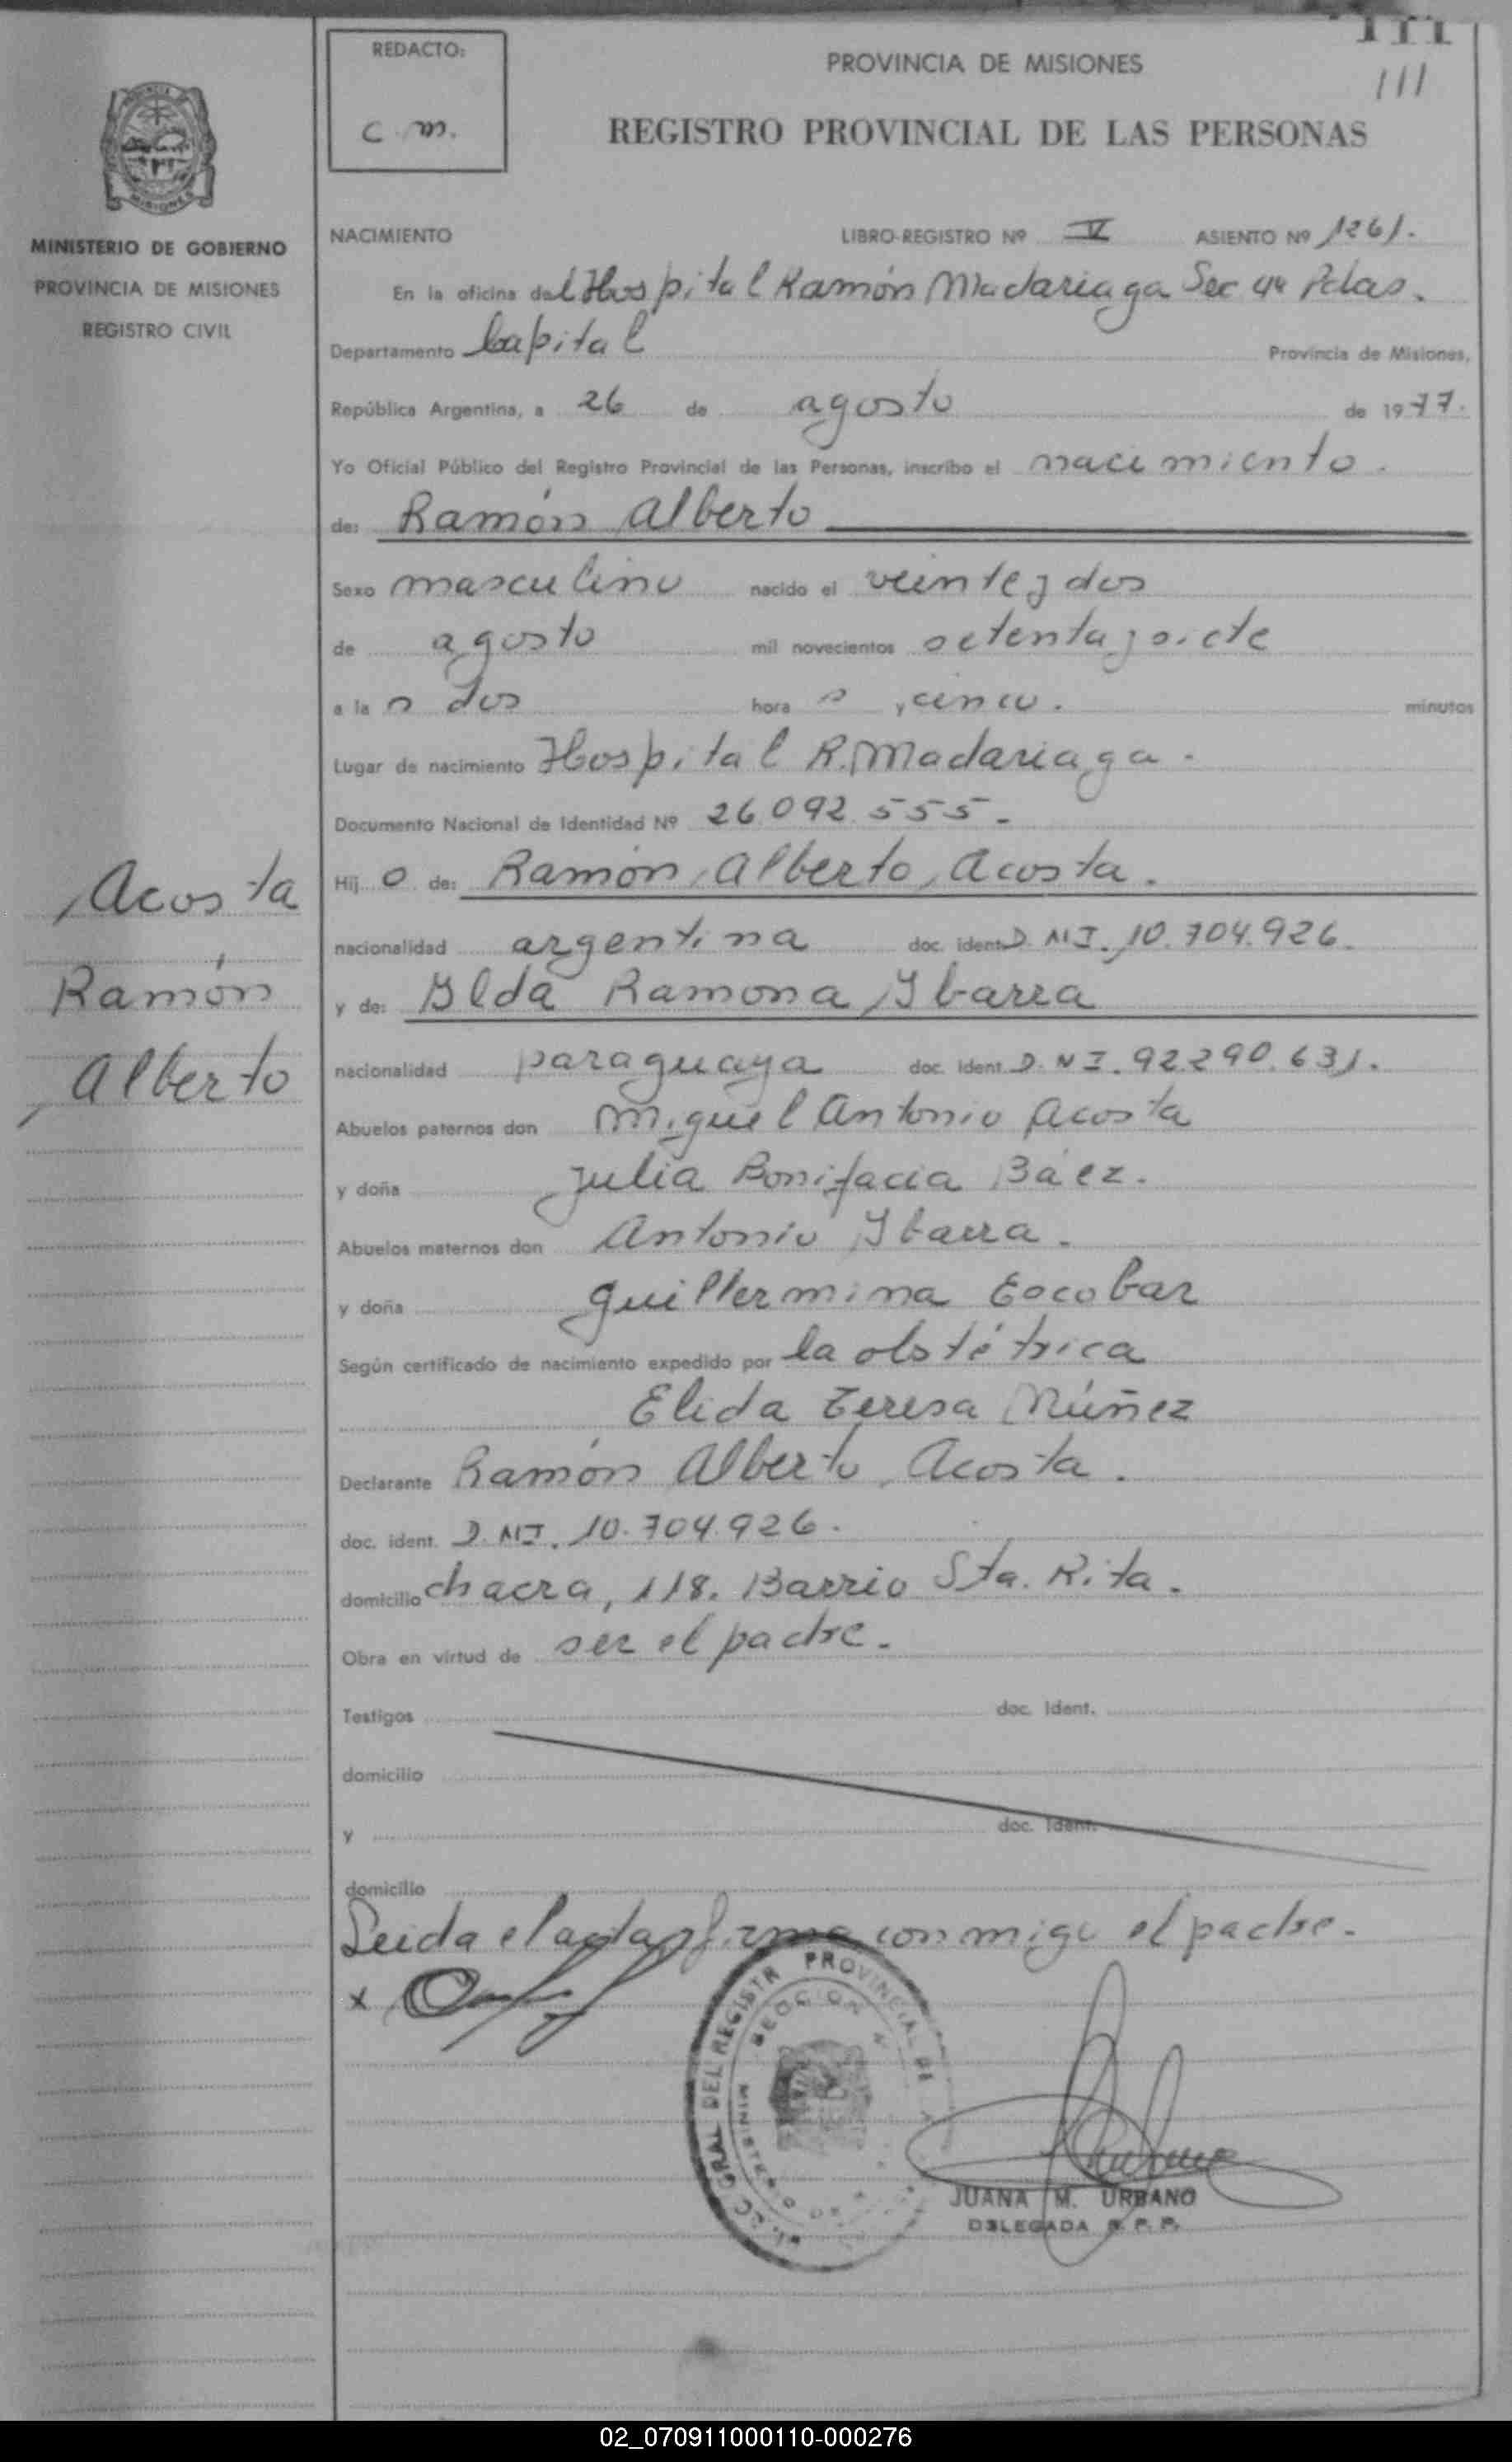 111
111
REDACTO:
C. M.
PROVINCIA DE MISIONES
REGISTRO PROVINCIAL DE LAS PERSONAS
MISIONES
MINISTERIO DE GOBIERNO
PROVINCIA DE MISIONES
REGISTRO CIVIL
NACIMIENTO LIBRO-REGISTRO Nº V ASIENTO Nº 1261.
En la oficina del Hospital Ramón Madariaga Sec 4a Pdas.
Departamento Capital Provincia de Misiones,
República Argentina, a 26 de agosto de 1977.
Yo Oficial Público del Registro Provincial de las Personas, inscribo el nacimiento.
de: Ramón Alberto
Sexo masculino nacido el veinte y dos
de agosto mil novecientos setenta y siete
a las dos horas y cinco. minutos
Lugar de nacimiento Hospital R. Madariaga.
Documento Nacional de Identidad Nº 26.092.555-
Hijo de: Ramón Alberto Acosta.
nacionalidad argentina doc. ident. D.N.I. 10.704.926.
y de: Ylda Ramona Ybarra
nacionalidad paraguaya doc. ident. D.N.I. 92.290.631.
Abuelos paternos don Miguel Antonio Acosta
y doña Julia Bonifacia Báez.
Abuelos maternos don Antonio Ybarra.
y doña Guillermina Escobar
Según certificado de nacimiento expedido por la obstétrica
Elida Teresa Núñez
Declarante Ramón Alberto Acosta.
doc. ident. D.N.I. 10.704.926.
domicilio chacra, 118. Barrio Sta. Rita.
Obra en virtud de ser el padre.
Testigos doc. ident.
domicilio
y doc. ident.
domicilio
Leida el acta firma conmigo el padre.
x
Acosta
Ramón
Alberto
GRAL DEL REGISTR PROVINCIAL DE
SECCION 4
MINISTERIO
JUANA M. URBANO
DELEGADA R. P. P.
02_070911000110-000276